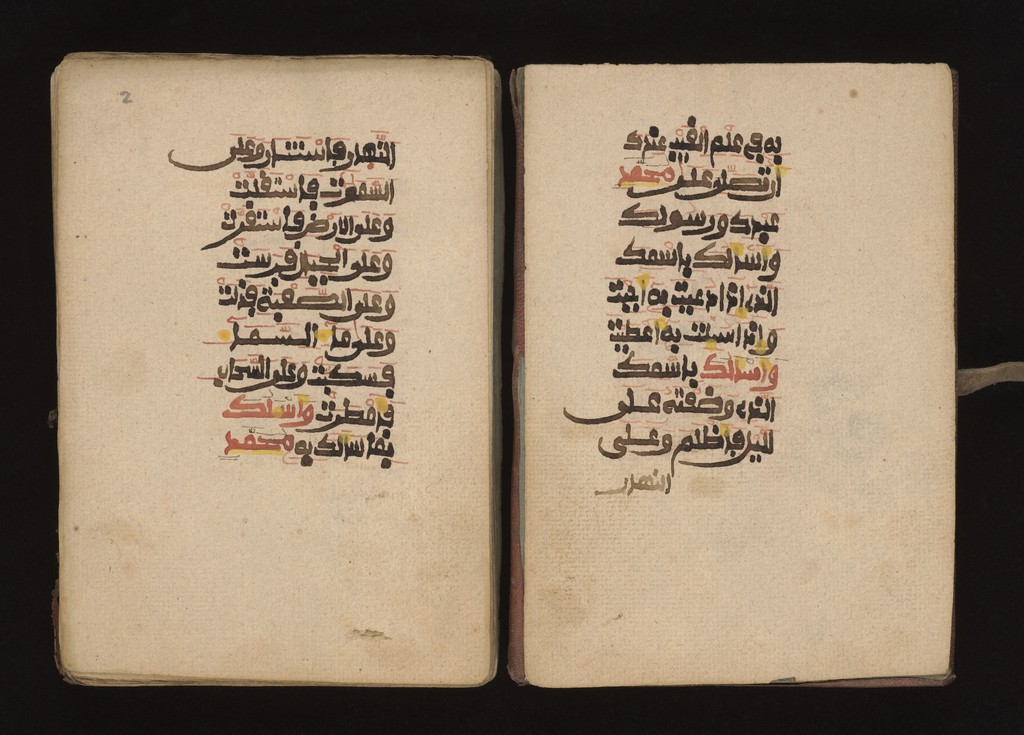 به في علم الغيب عندك
ان تصلي على محمد
عبدك ورسولك
واسئلك باسمك
الذي اذا دعيت به اجبت
واذا سئلت به اعطيت
واسئلك باسمك
الذي وضعته على
اليل فاظلم وعلى
النهار
2
النهار فاستنار وعلى
السموت فاستقلت
وعلى الارض فاستقرت
وعلى الجبال فرست
وعلى الصعبة فذلت
وعلى ماء السماء
فسكبت وعلى السحاب
فامطرت واسئلك
بما سالك به محمد